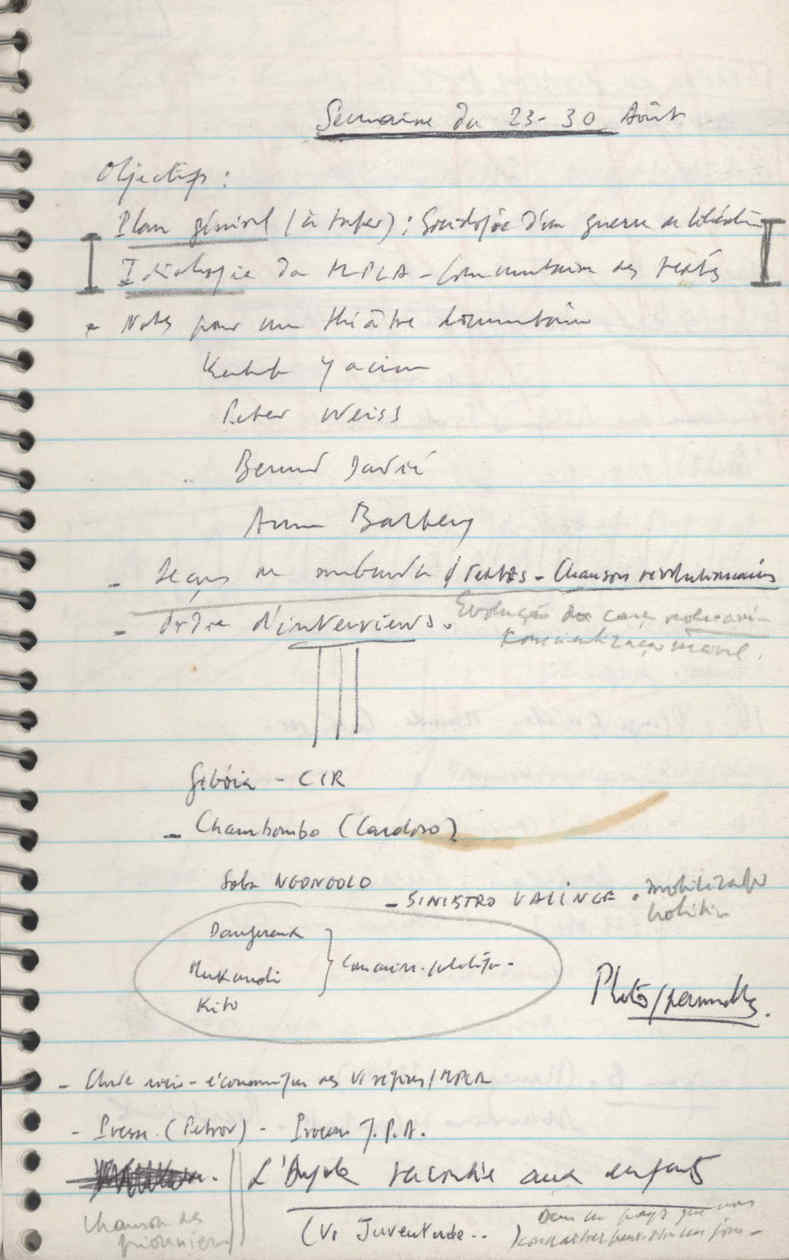 Semaine du 23-30 Août
Objectifs :
Plan général (à taper) : Sociologie d'une guerre de libération
Idéologie du MPLA - Commentaire des textes
Notes pour un théâtre documentaire
Kateb Yacine
Peter Weiss
Bernard
Anne Barbey
- / textes - Chansons révolutionnaires
- Ordre d'interviews.
Evolução
Gibóia - CIR
- Chambombo (Cardoso)
Soba NGONGOLO
- SINISTRO VALINGE . mobilização
politica
Dangereux
Mukandi
Kito
Commiss. politique
Photos/personnelles.
- Etude socio-économique des VI régions/MPLA
- Presse (Petrov) - Proverbes J.P.A.
L'Angola racontée aux enfants
Chanson des
pionniers
(Vi Juventude..
Dans un pays que vous